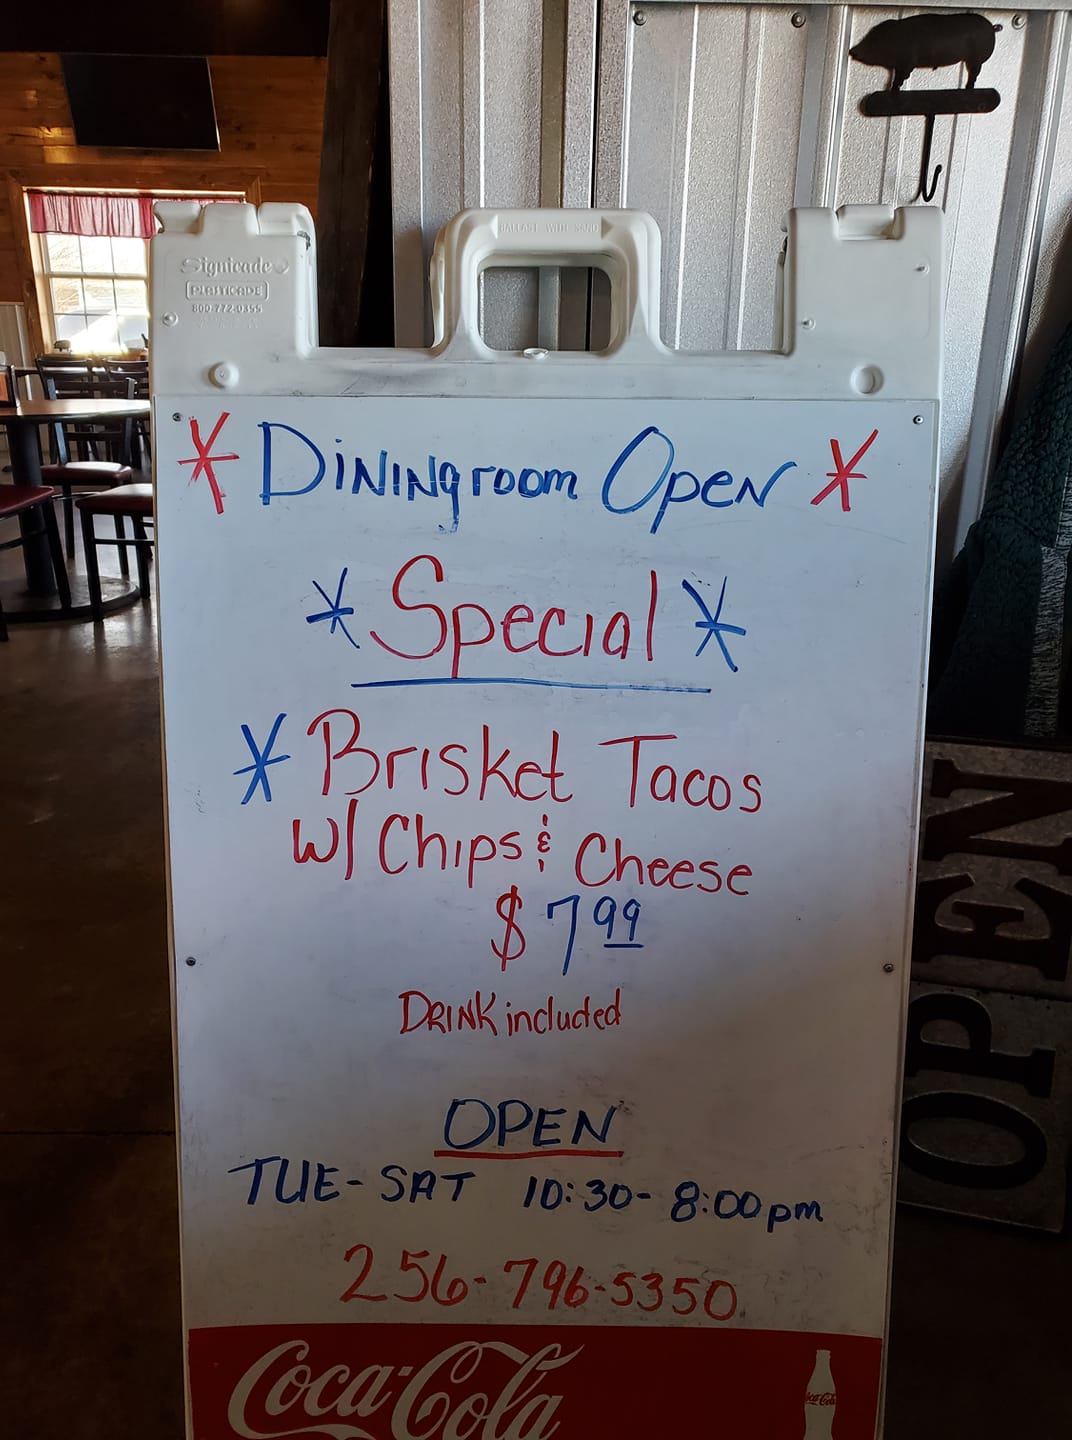 BALLAST WITH SAND
Signicade
PLASTICADE
800-772-0355
* Diningroom Open *
* Special *
* Brisket Tacos
w/ Chips & Cheese
$7.99
Drink included
OPEN
TUE-SAT 10:30-8:00pm
256-796-5350
Coca-Cola
Coca-Cola
OPEN